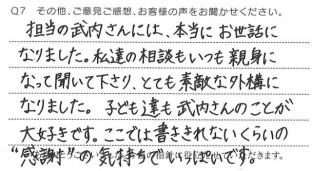 Q7 その他、ご意見ご感想、お客様の声をお聞かせください。
担当の武内さんには、本当にお世話に
なりました。私達の相談もいつも親身に
なって聞いて下さり、とても素敵な外構に
なりました。子ども達も武内さんのことが
大好きです。ここでは書ききれないくらいの
"感謝"の気持ちでいっぱいです。